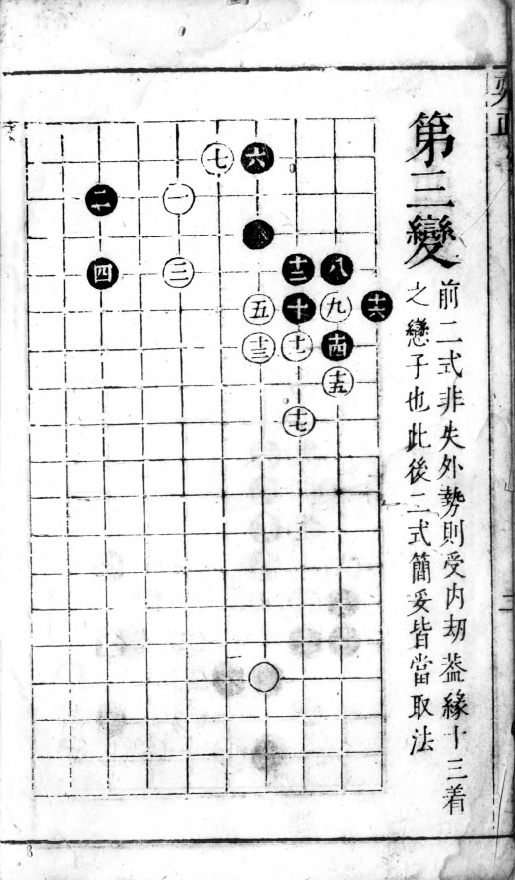 第三變
前二式非失外勢則受内刼葢緣十三着
之戀子也此後二式簡妥皆當取法
七 六
二 一
四 三 十二 八
五 十 九 十六
十三 十一 十四
十五
十七